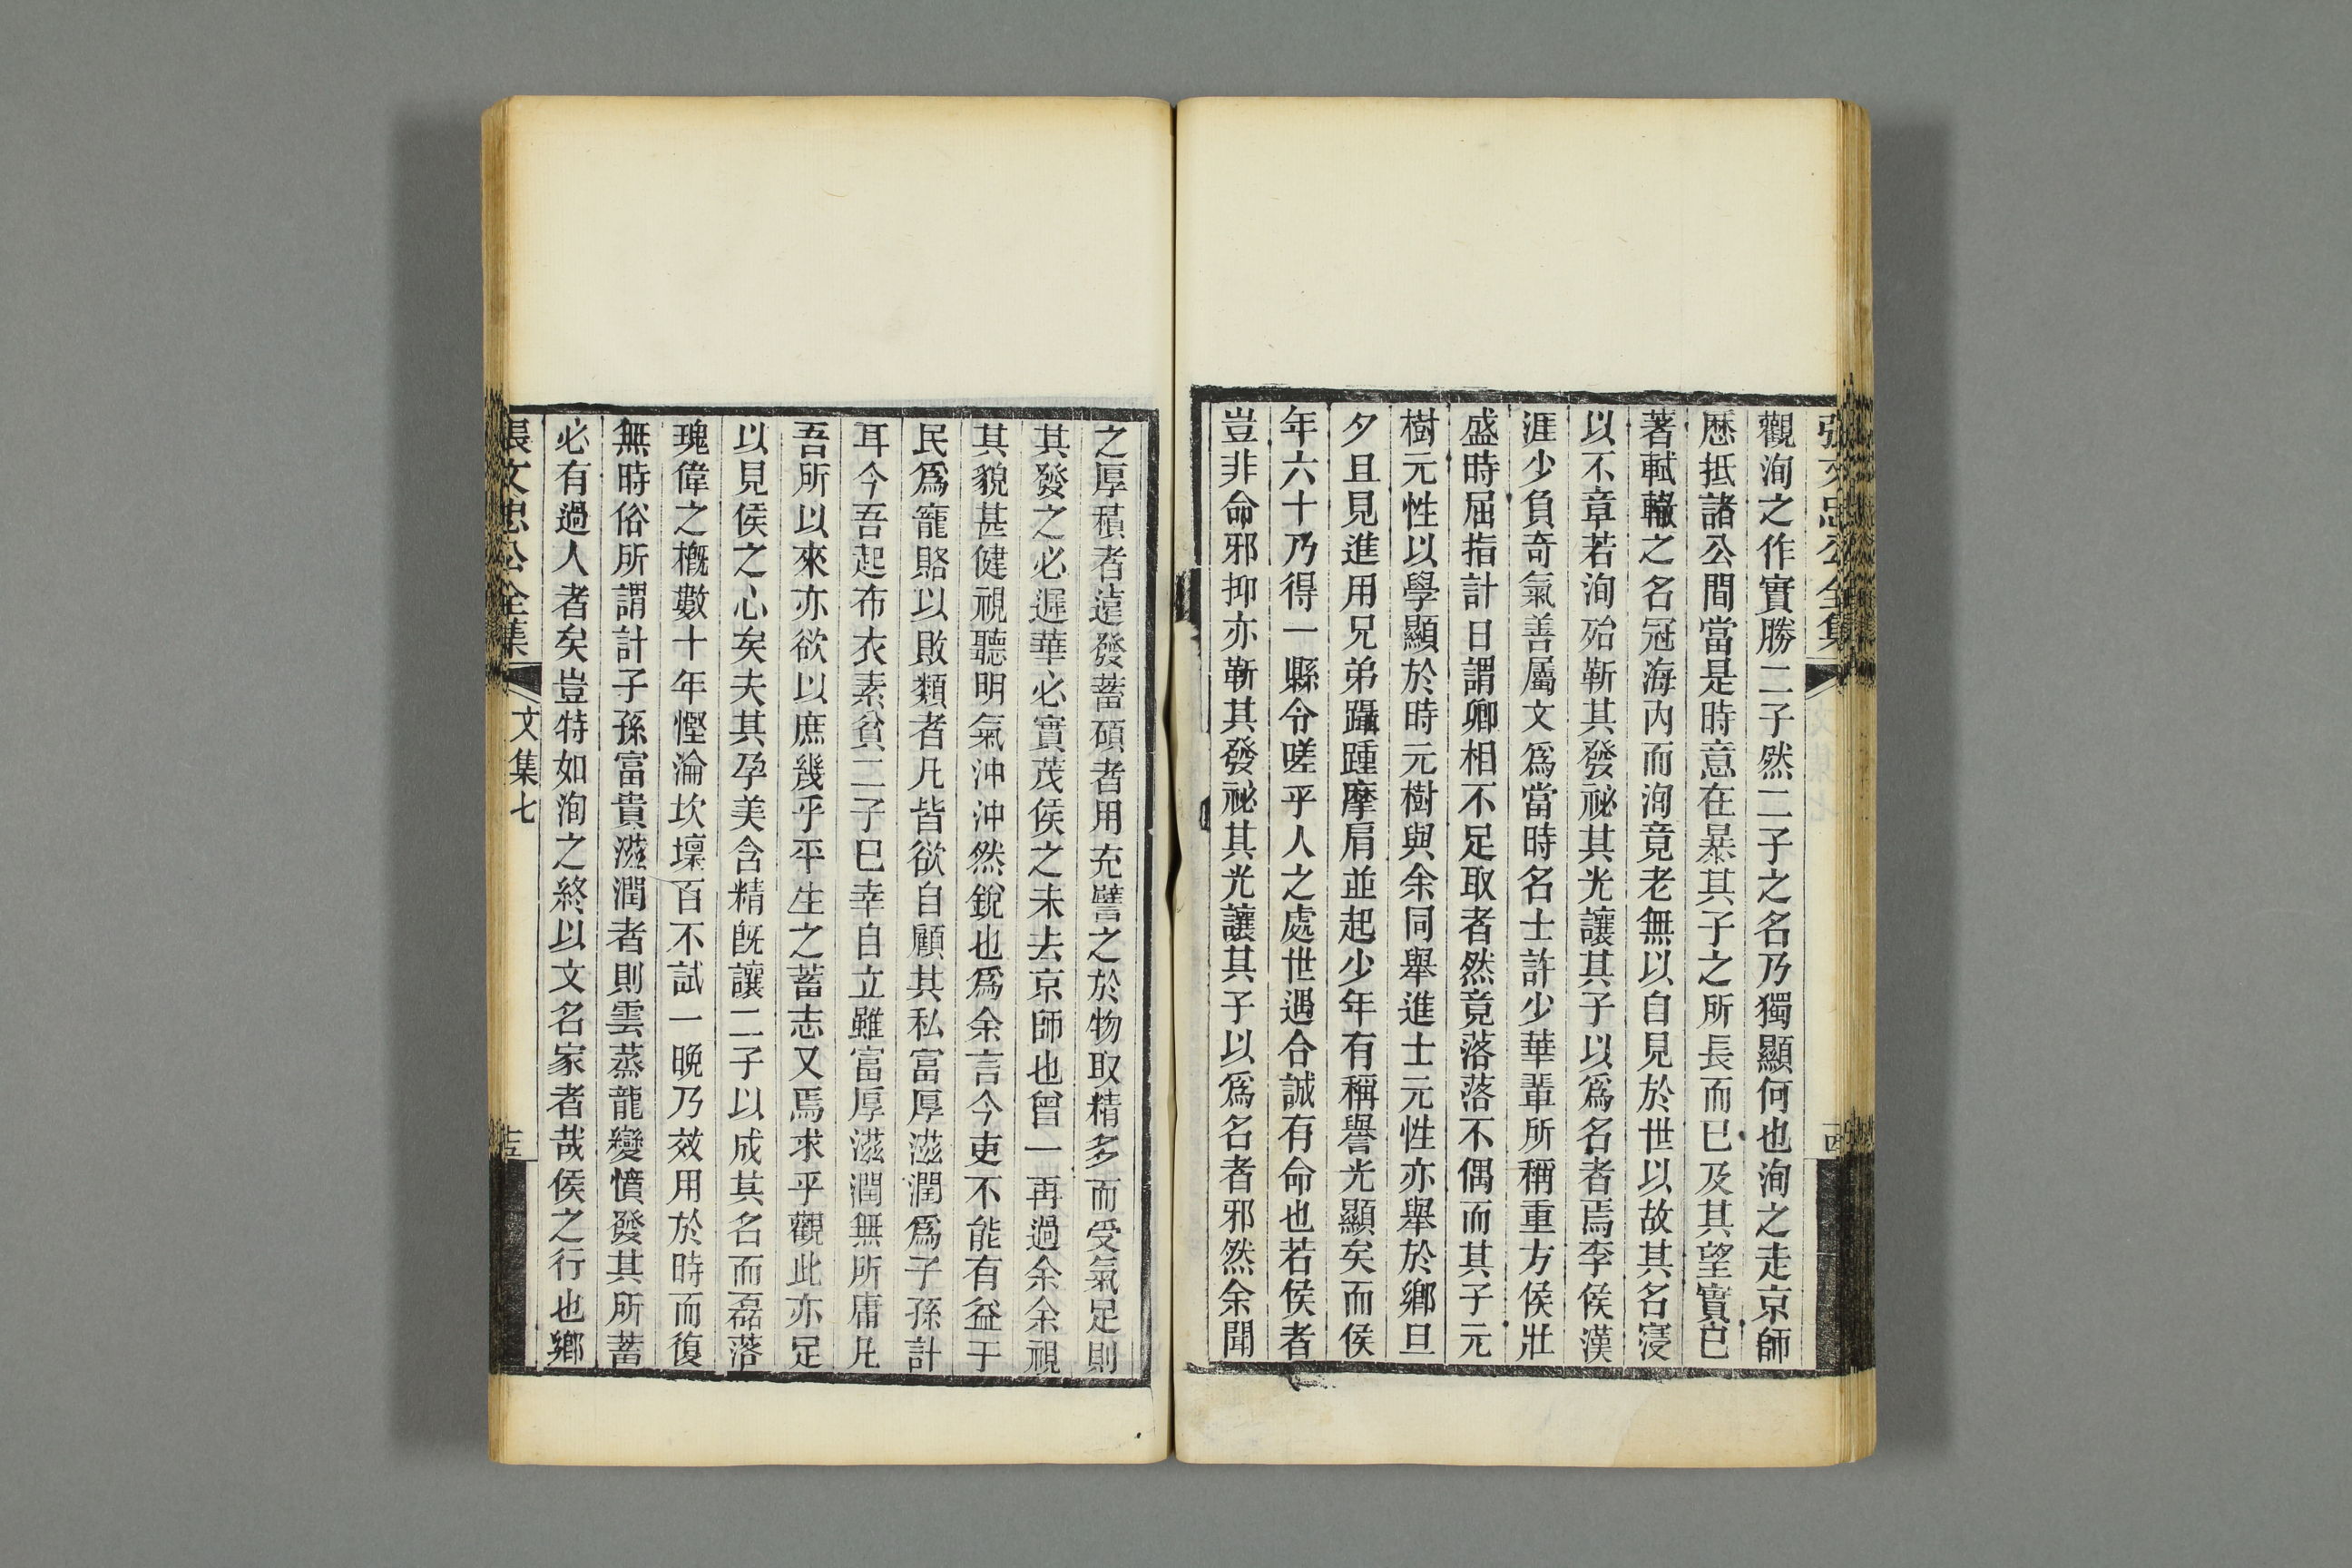 張文忠公全集
觀洵之作實勝二子然二子之名乃獨顯何也洵之走京師
歷抵諸公間當是時意在暴其子之所長而已及其望實已
著軾轍之名冠海内而洵竟老無以自見於世以故其名寖
以不章若洵殆靳其發祕其光讓其子以爲名者焉李侯漢
涯少負奇氣善屬文爲當時名士許少華輩所稱重方侯壯
盛時屈指計日謂卿相不足取者然竟落落不偶而其子元
樹元性以學顯於時元樹與余同舉進士元性亦舉於鄉旦
夕且見進用兄弟躡踵摩肩並起少年有稱譽光顯矣而侯
年六十乃得一縣令嗟乎人之處世遇合誠有命也若侯者
豈非命邪抑亦靳其發祕其光讓其子以爲名者邪然余聞
之厚積者遠發蓄碩者用充譬之於物取精多而受氣足則
其發之必遲華必實茂侯之未去京師也曾一再過余余視
其貌甚健視聽明氣沖沖然銳也爲余言今吏不能有益于
民爲寵賂以敗類者凡皆欲自顧其私富厚滋潤爲子孫計
耳今吾起布衣素貧二子已幸自立雖富厚滋潤無所庸凡
吾所以來亦欲以庶幾乎平生之蓄志又焉求乎觀此亦足
以見侯之心矣夫其孕美含精旣讓二子以成其名而磊落
瑰偉之槪數十年慳淪坎壈百不試一晚乃效用於時而復
無時俗所謂計子孫富貴滋潤者則雲蒸龍變憤發其所蓄
必有過人者矣豈特如洵之終以文名家者哉侯之行也鄉
張文忠公全集
文集七